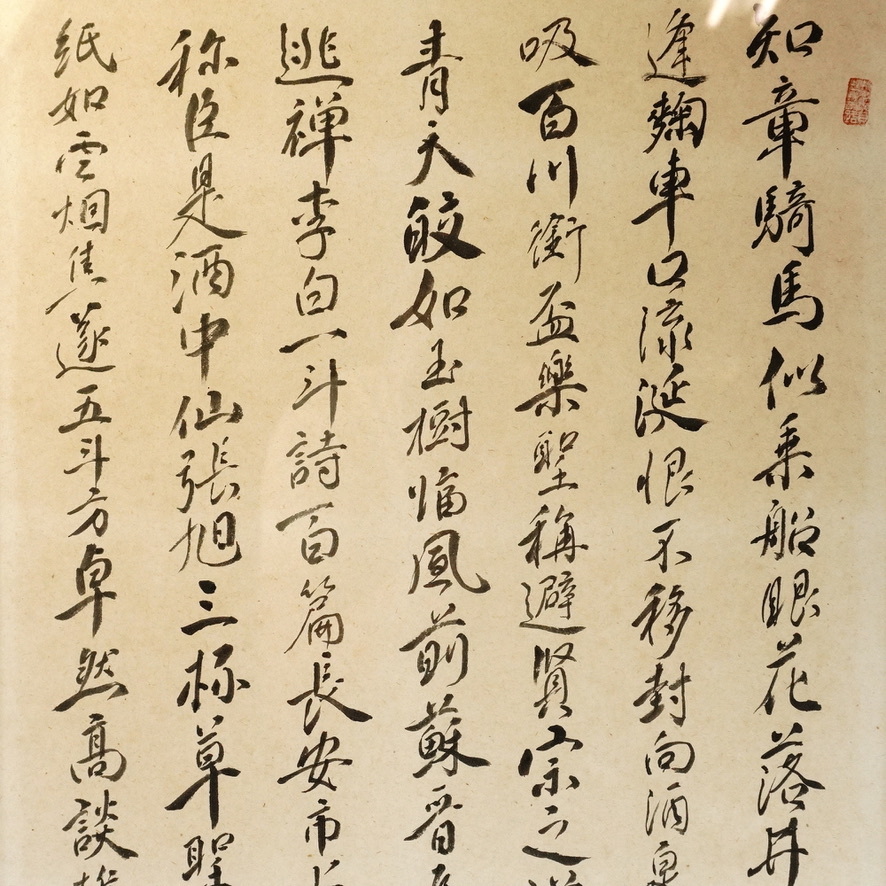 知章騎馬似乘船眼花落井
逢麴車口流涎恨不移封向酒泉
吸百川銜盃樂聖稱避賢宗之
青天皎如玉樹臨風前蘇晉
逃禅李白一斗詩百篇長安市
称臣是酒中仙張旭三杯草聖
紙如雲烟焦遂五斗方卓然高談